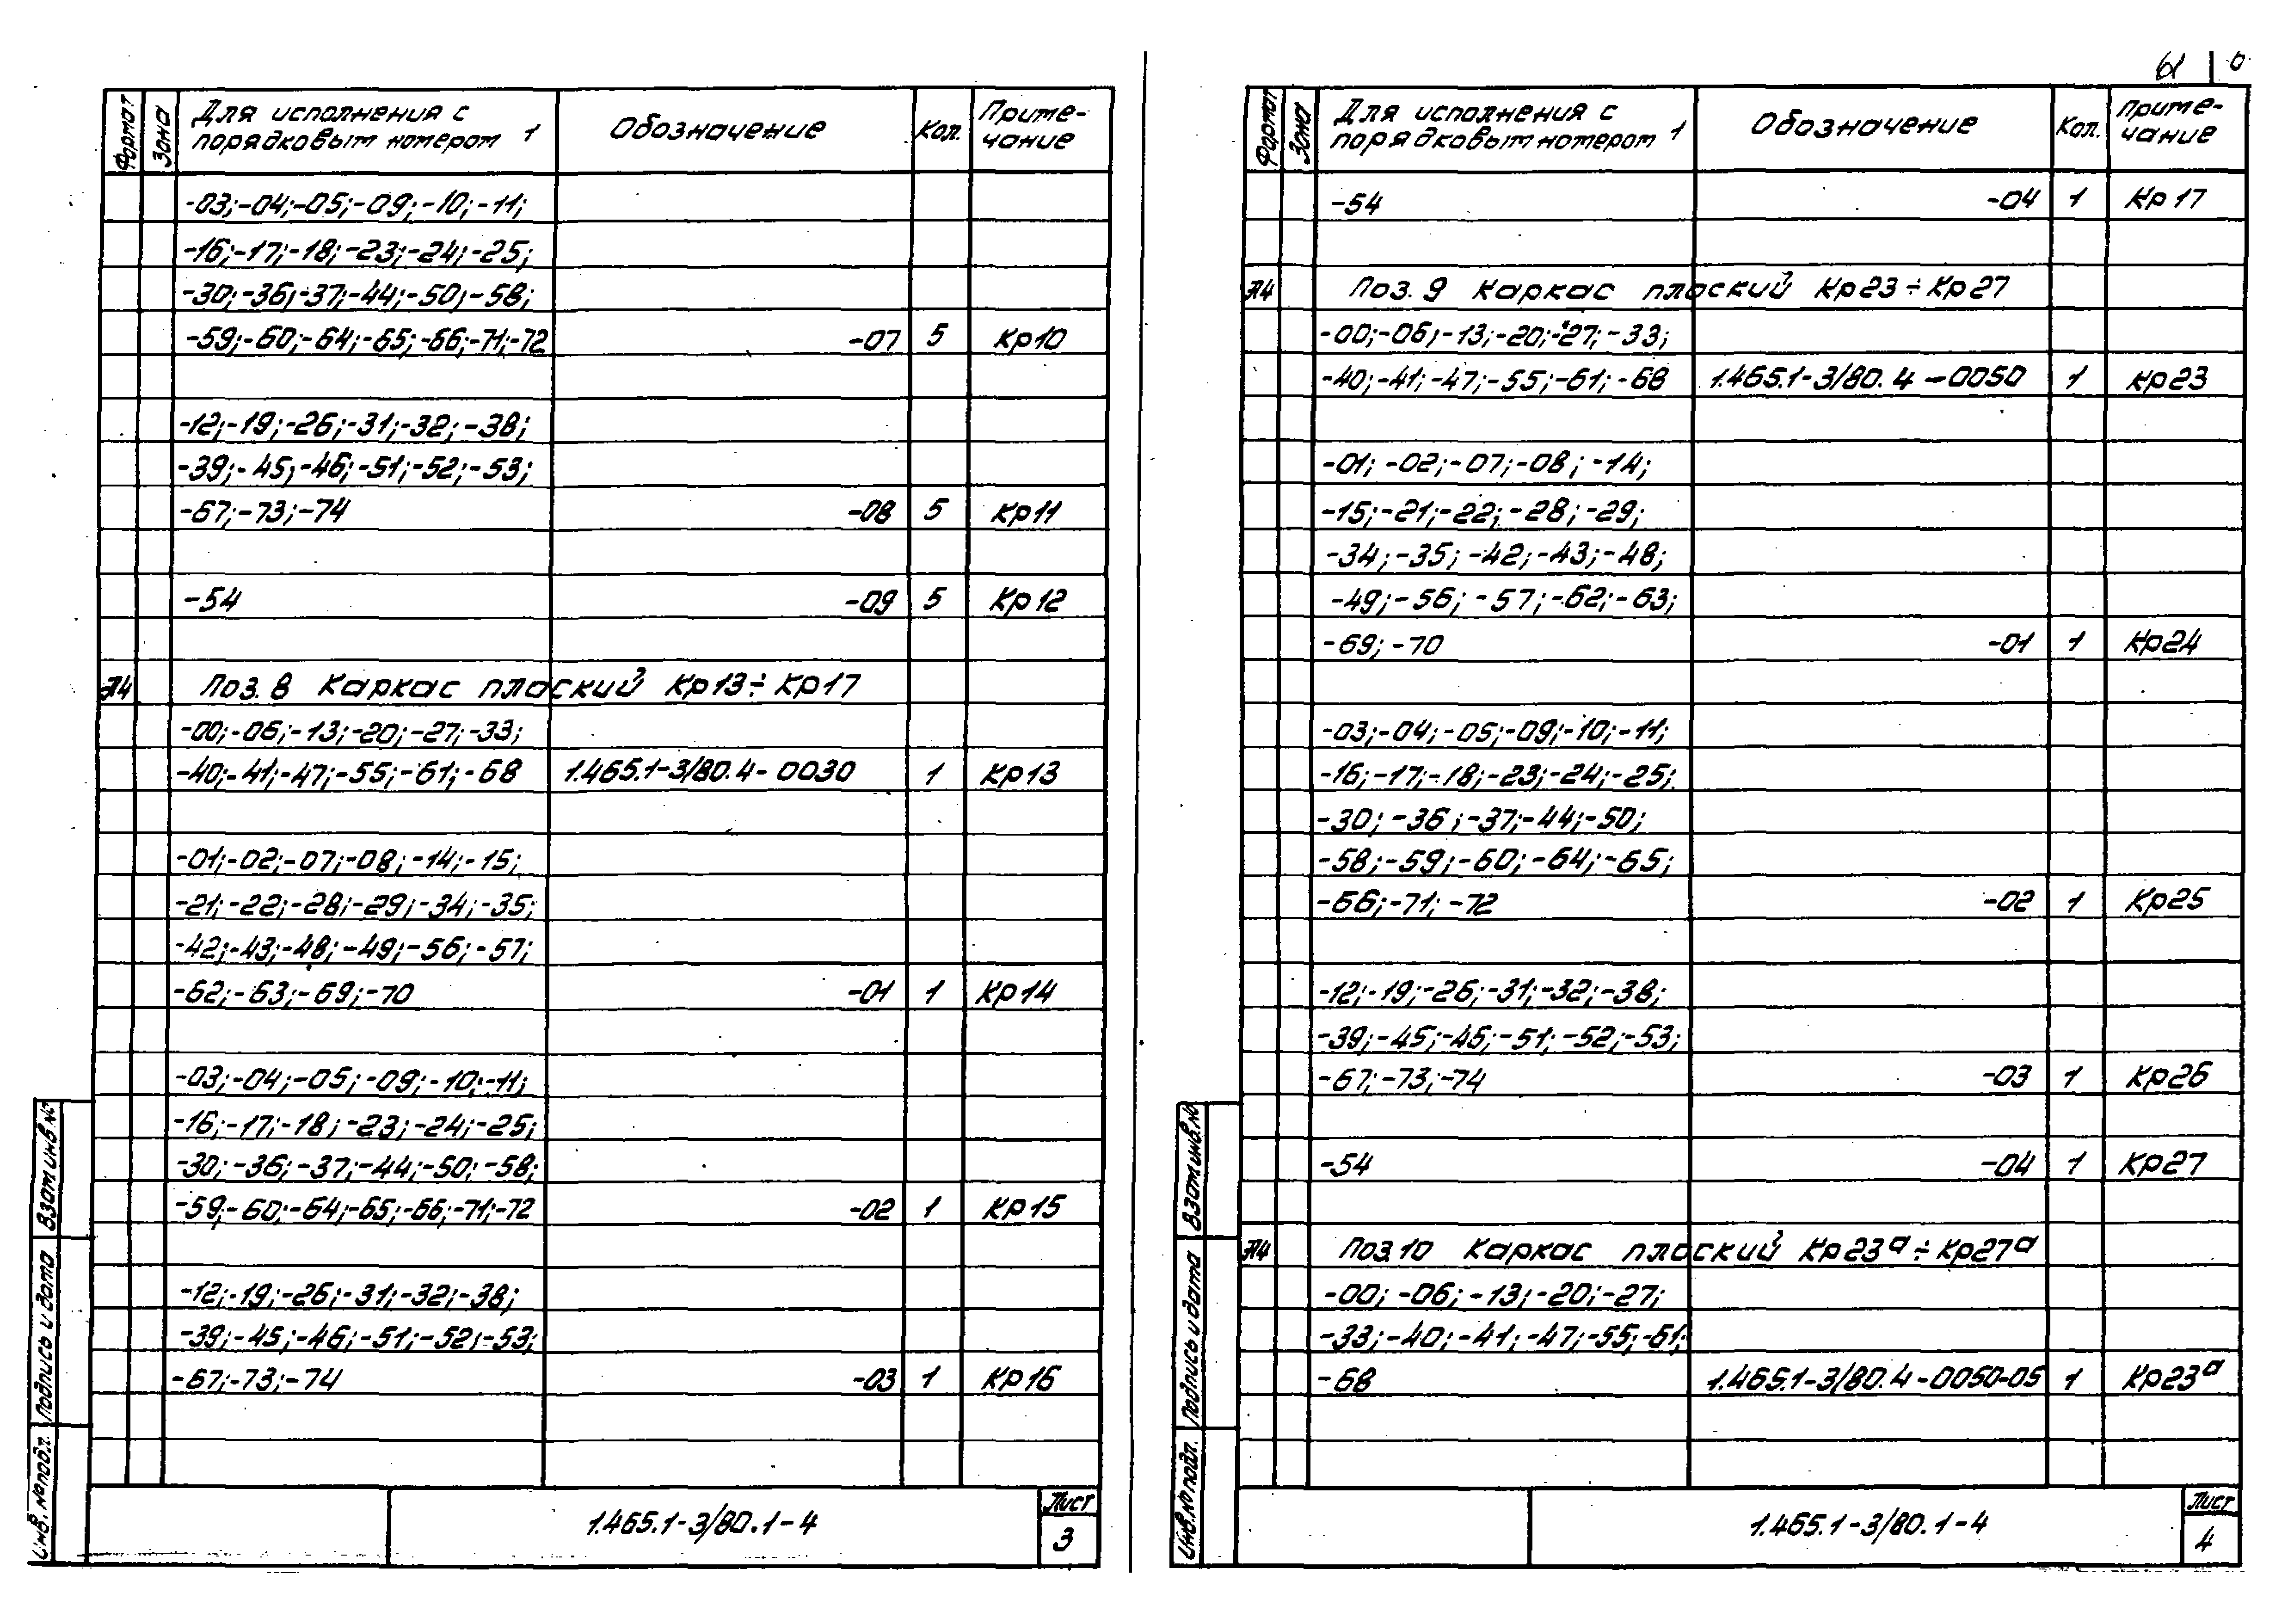 61
Формат Зона Для исполнения с порядковым номером 1 Обозначение Кол. Примечание
-03;-04;-05;-09;-10;-11;
-16;-17;-18;-23;-24;-25;
-30;-36;-37;-44;-50;-58;
-59;-60;-64;-65;-66;-71;-72 -07 5 Кр10
-12;-19;-26;-31;-32;-38;
-39;-45;-46;-51;-52;-53;
-67;-73;-74 -08 5 Кр11
-54 -09 5 Кр12
А4 Поз. 8 Каркас плоский Кр13÷Кр17
-00;-06;-13;-20;-27;-33;
-40;-41;-47;-55;-61;-68 1.465.1-3/80.4-0030 1 Кр13
-01;-02;-07;-08;-14;-15;
-21;-22;-28;-29;-34;-35;
-42;-43;-48;-49;-56;-57;
-62;-63;-69;-70 -01 1 Кр14
-03;-04;-05;-09;-10;-11;
-16;-17;-18;-23;-24;-25;
-30;-36;-37;-44;-50;-58;
-59;-60;-64;-65;-66;-71;-72 -02 1 Кр15
-12;-19;-26;-31;-32;-38;
-39;-45;-46;-51;-52;-53;
-67;-73;-74 -03 1 Кр16
Инв. № подл. Подпись и дата Взам инв. №
1.465.1-3/80.1-4
Лист
3
Формат Зона Для исполнения с порядковым номером 1 Обозначение Кол. Примечание
-54 -04 1 Кр17
А4 Поз. 9 Каркас плоский Кр23÷Кр27
-00;-06;-13;-20;-27;-33;
-40;-41;-47;-55;-61;-68 1.465.1-3/80.4-0050 1 Кр23
-01;-02;-07;-08;-14;
-15;-21;-22;-28;-29;
-34;-35;-42;-43;-48;
-49;-56;-57;-62;-63;
-69;-70 -01 1 Кр24
-03;-04;-05;-09;-10;-11;
-16;-17;-18;-23;-24;-25;
-30;-36;-37;-44;-50;
-58;-59;-60;-64;-65;
-66;-71;-72 -02 1 Кр25
-12;-19;-26;-31;-32;-38;
-39;-45;-46;-51;-52;-53;
-67;-73;-74 -03 1 Кр26
-54 -04 1 Кр27
А4 Поз.10 Каркас плоский Кр23ᵃ÷Кр27ᵃ
-00;-06;-13;-20;-27;
-33;-40;-41;-47;-55;-61;
-68 1.465.1-3/80.4-0050-05 1 Кр23ᵃ
Инв. № подл. Подпись и дата Взам. инв. №
1.465.1-3/80.1-4
Лист
4